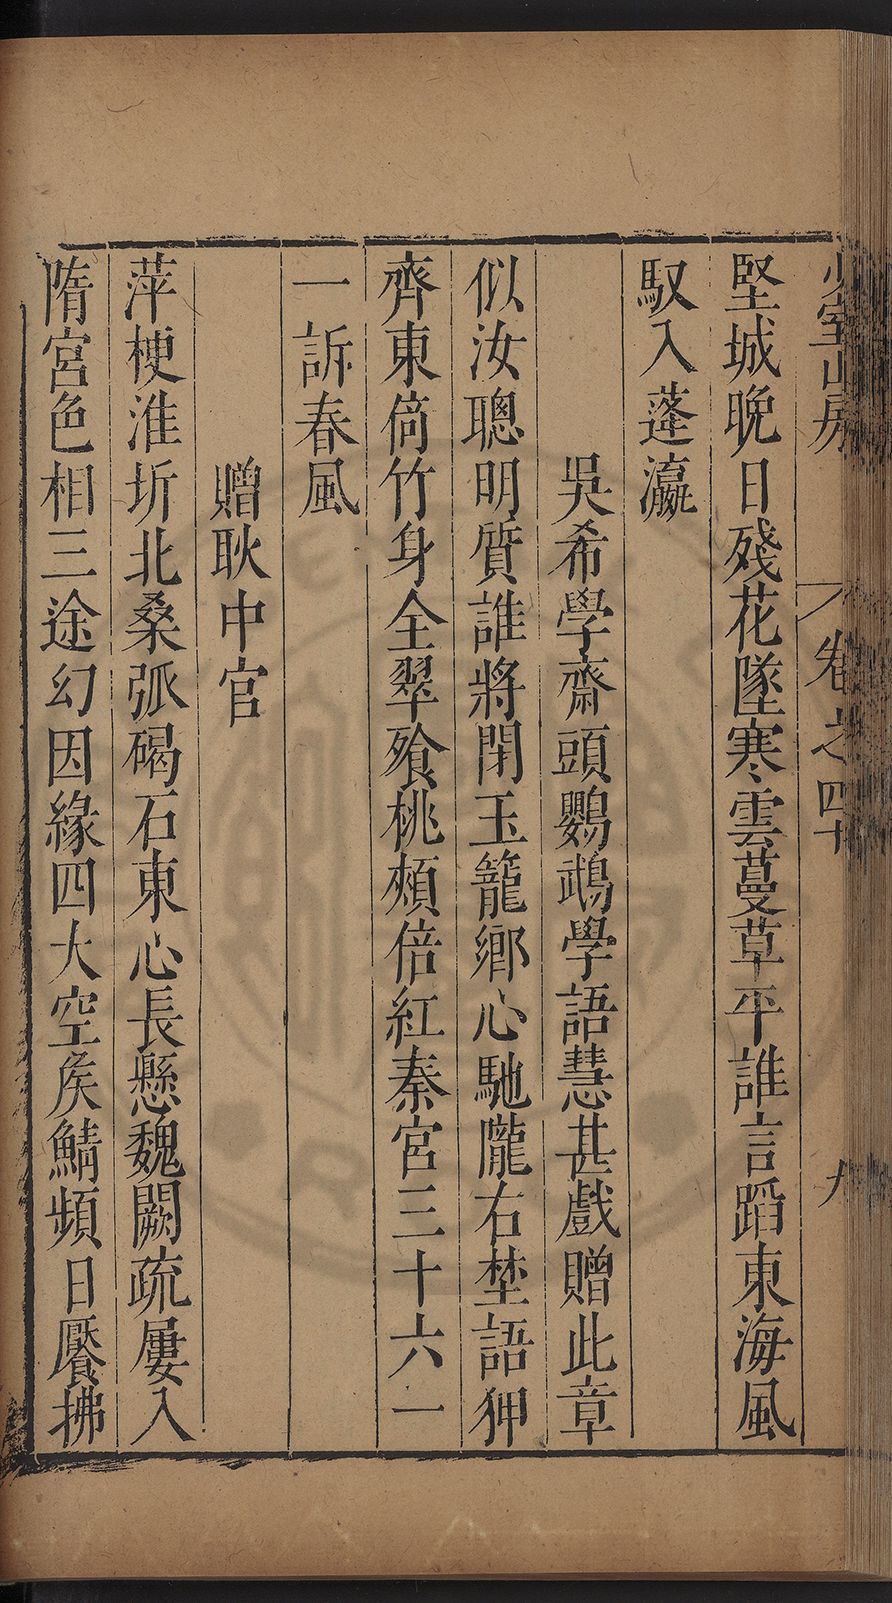 少室山房
卷之四十
九
堅城晚日殘花墜寒雲蔓草平誰言蹈東海風
馭入蓬瀛
吳希學齋頭鸚鵡學語慧甚戲贈此章
似汝聰明質誰將閉玉籠鄉心馳隴右埜語狎
齊東倚竹身全翠飱桃頰倍紅秦宮三十六一
一訴春風
贈耿中官
萍梗淮圻北桑弧碣石東心長懸魏闕疏屢入
隋宮色相三途幻因緣四大空矦鯖頻日饜拂